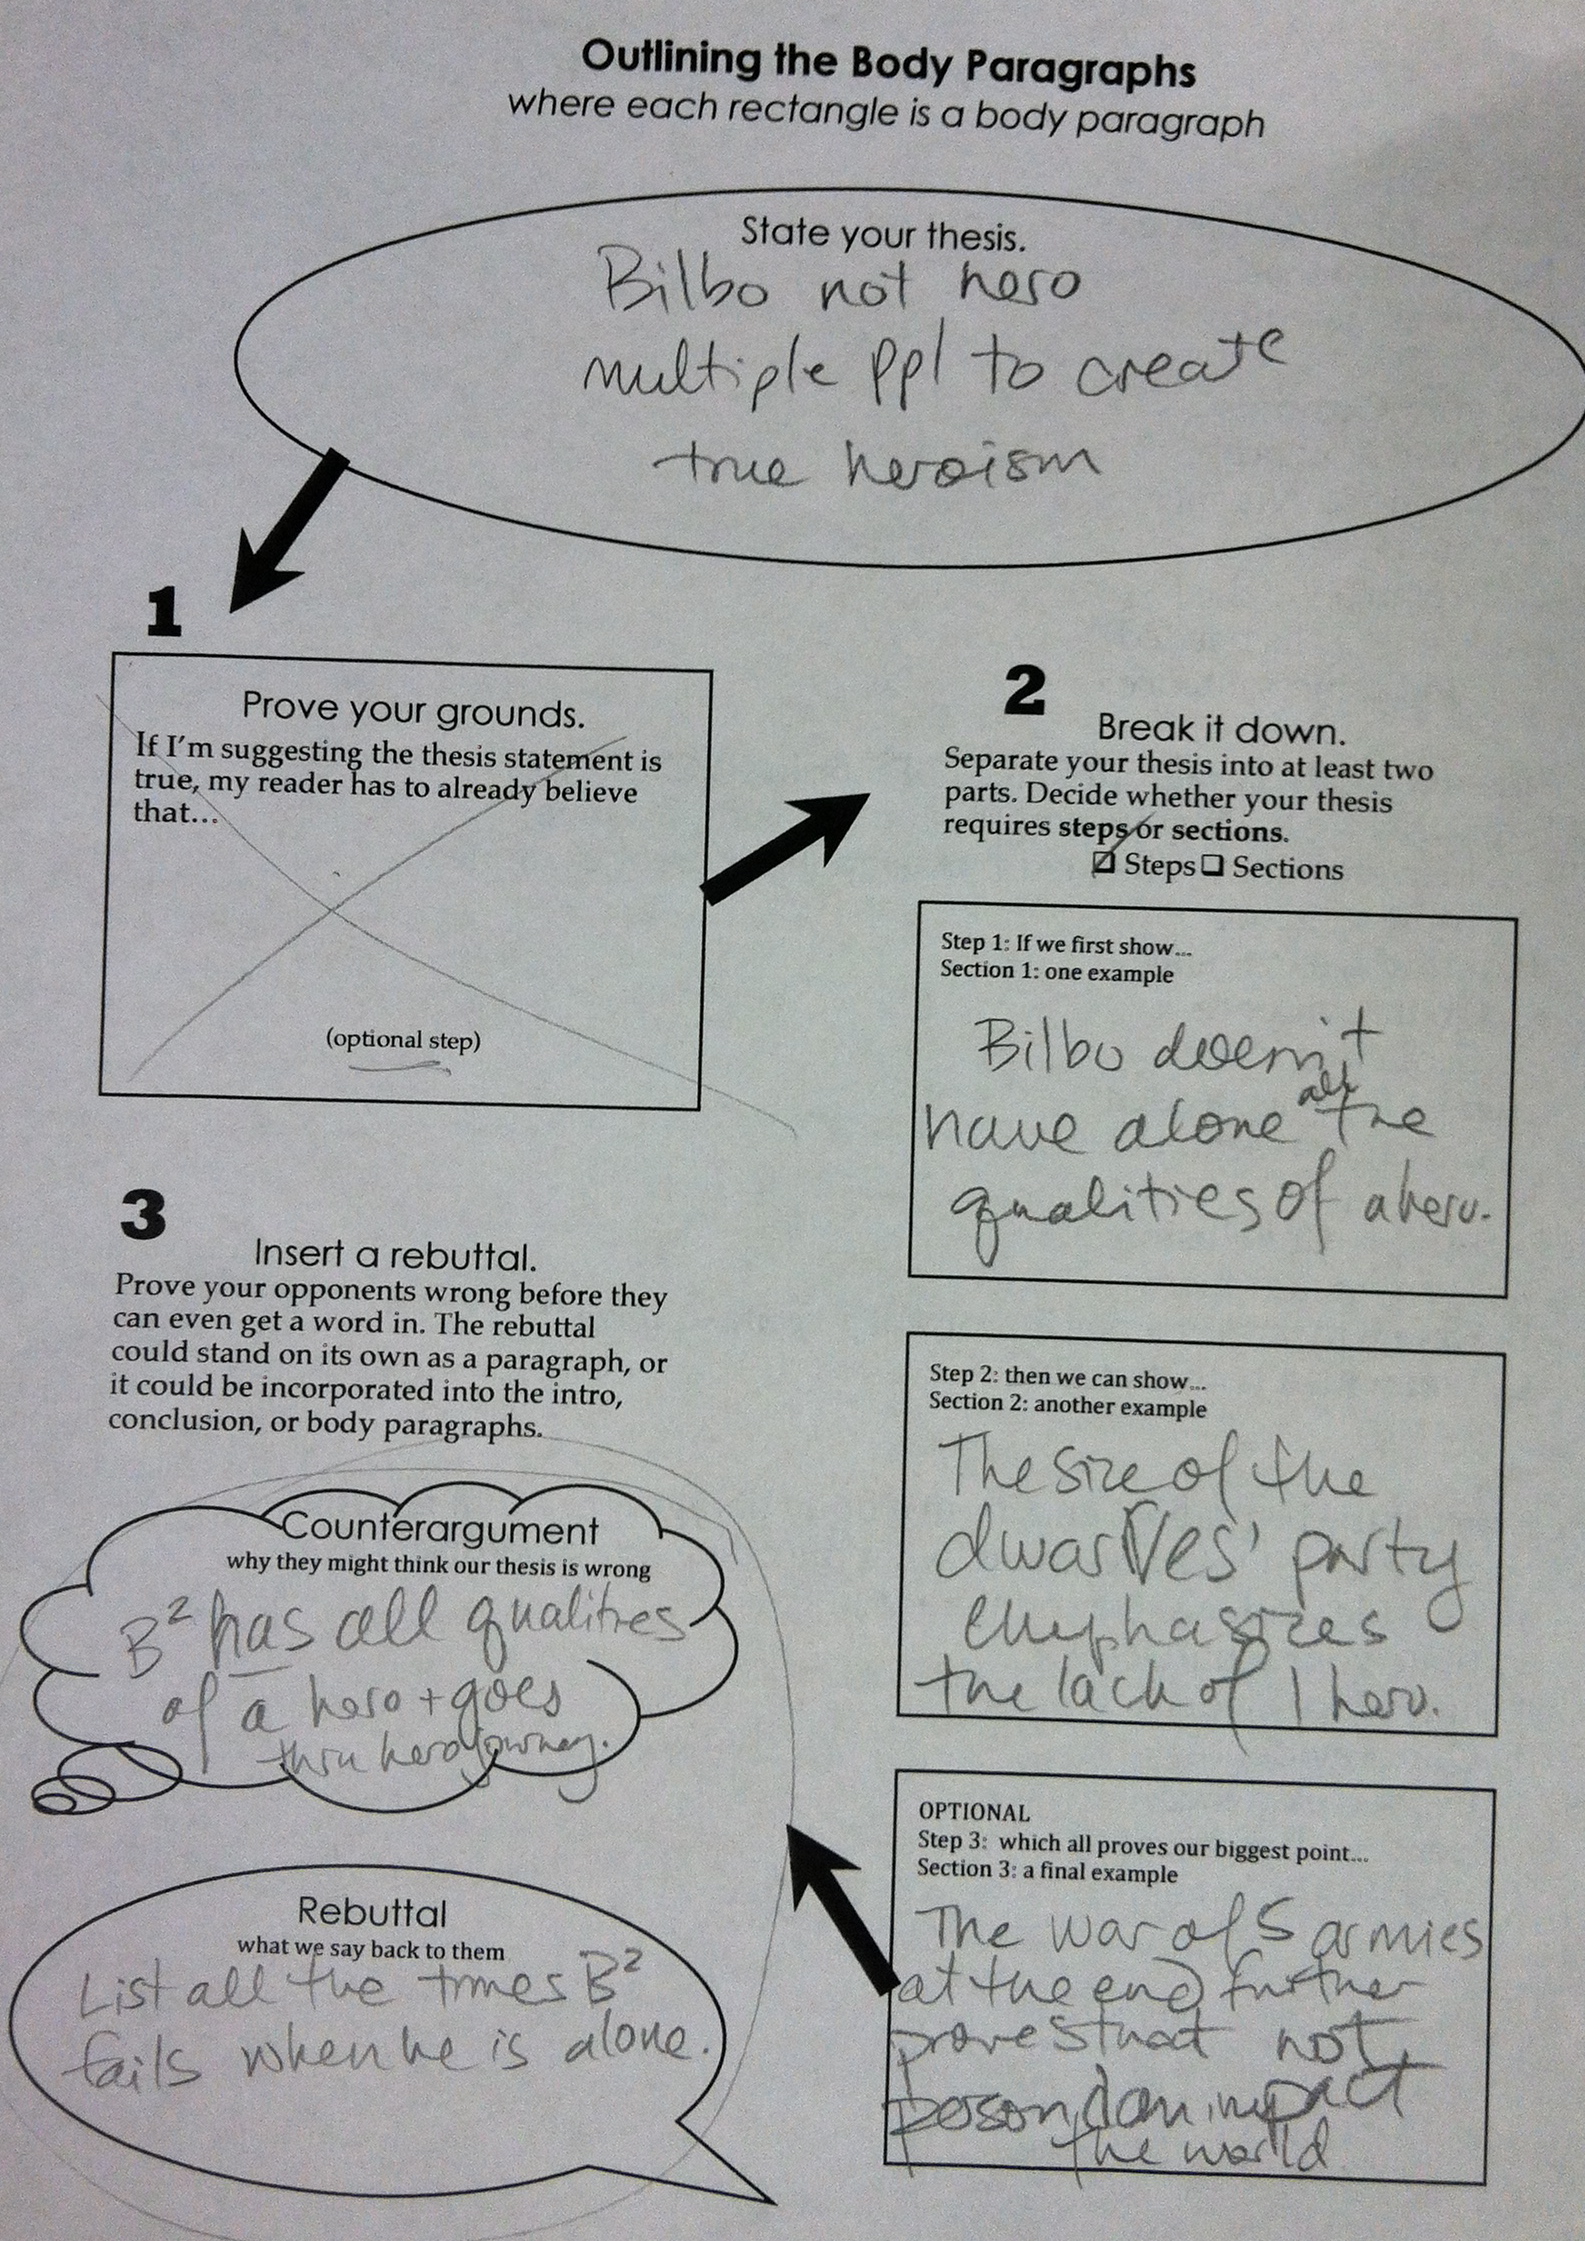 Outlining the Body Paragraphs
where each rectangle is a body paragraph
State your thesis.
Bilbo not hero
multiple ppl to create
true heroism
1
Prove your grounds.
If I'm suggesting the thesis statement is
true, my reader has to already believe
that...
(optional step)
2
Break it down.
Separate your thesis into at least two
parts. Decide whether your thesis
requires steps or sections.
☑ Steps ❑ Sections
Step 1: If we first show...
Section 1: one example
Bilbo doesn't
have alone all the
qualities of a hero.
Step 2: then we can show...
Section 2: another example
The size of the
dwarves' party
emphasizes
the lack of 1 hero.
OPTIONAL
Step 3: which all proves our biggest point...
Section 3: a final example
The war of 5 armies
at the end further
proves that not
person can impact
the world
3
Insert a rebuttal.
Prove your opponents wrong before they
can even get a word in. The rebuttal
could stand on its own as a paragraph, or
it could be incorporated into the intro,
conclusion, or body paragraphs.
Counterargument
why they might think our thesis is wrong
B² has all qualities
of a hero + goes
thru hero journey.
Rebuttal
what we say back to them
List all the times B²
fails when he is alone.